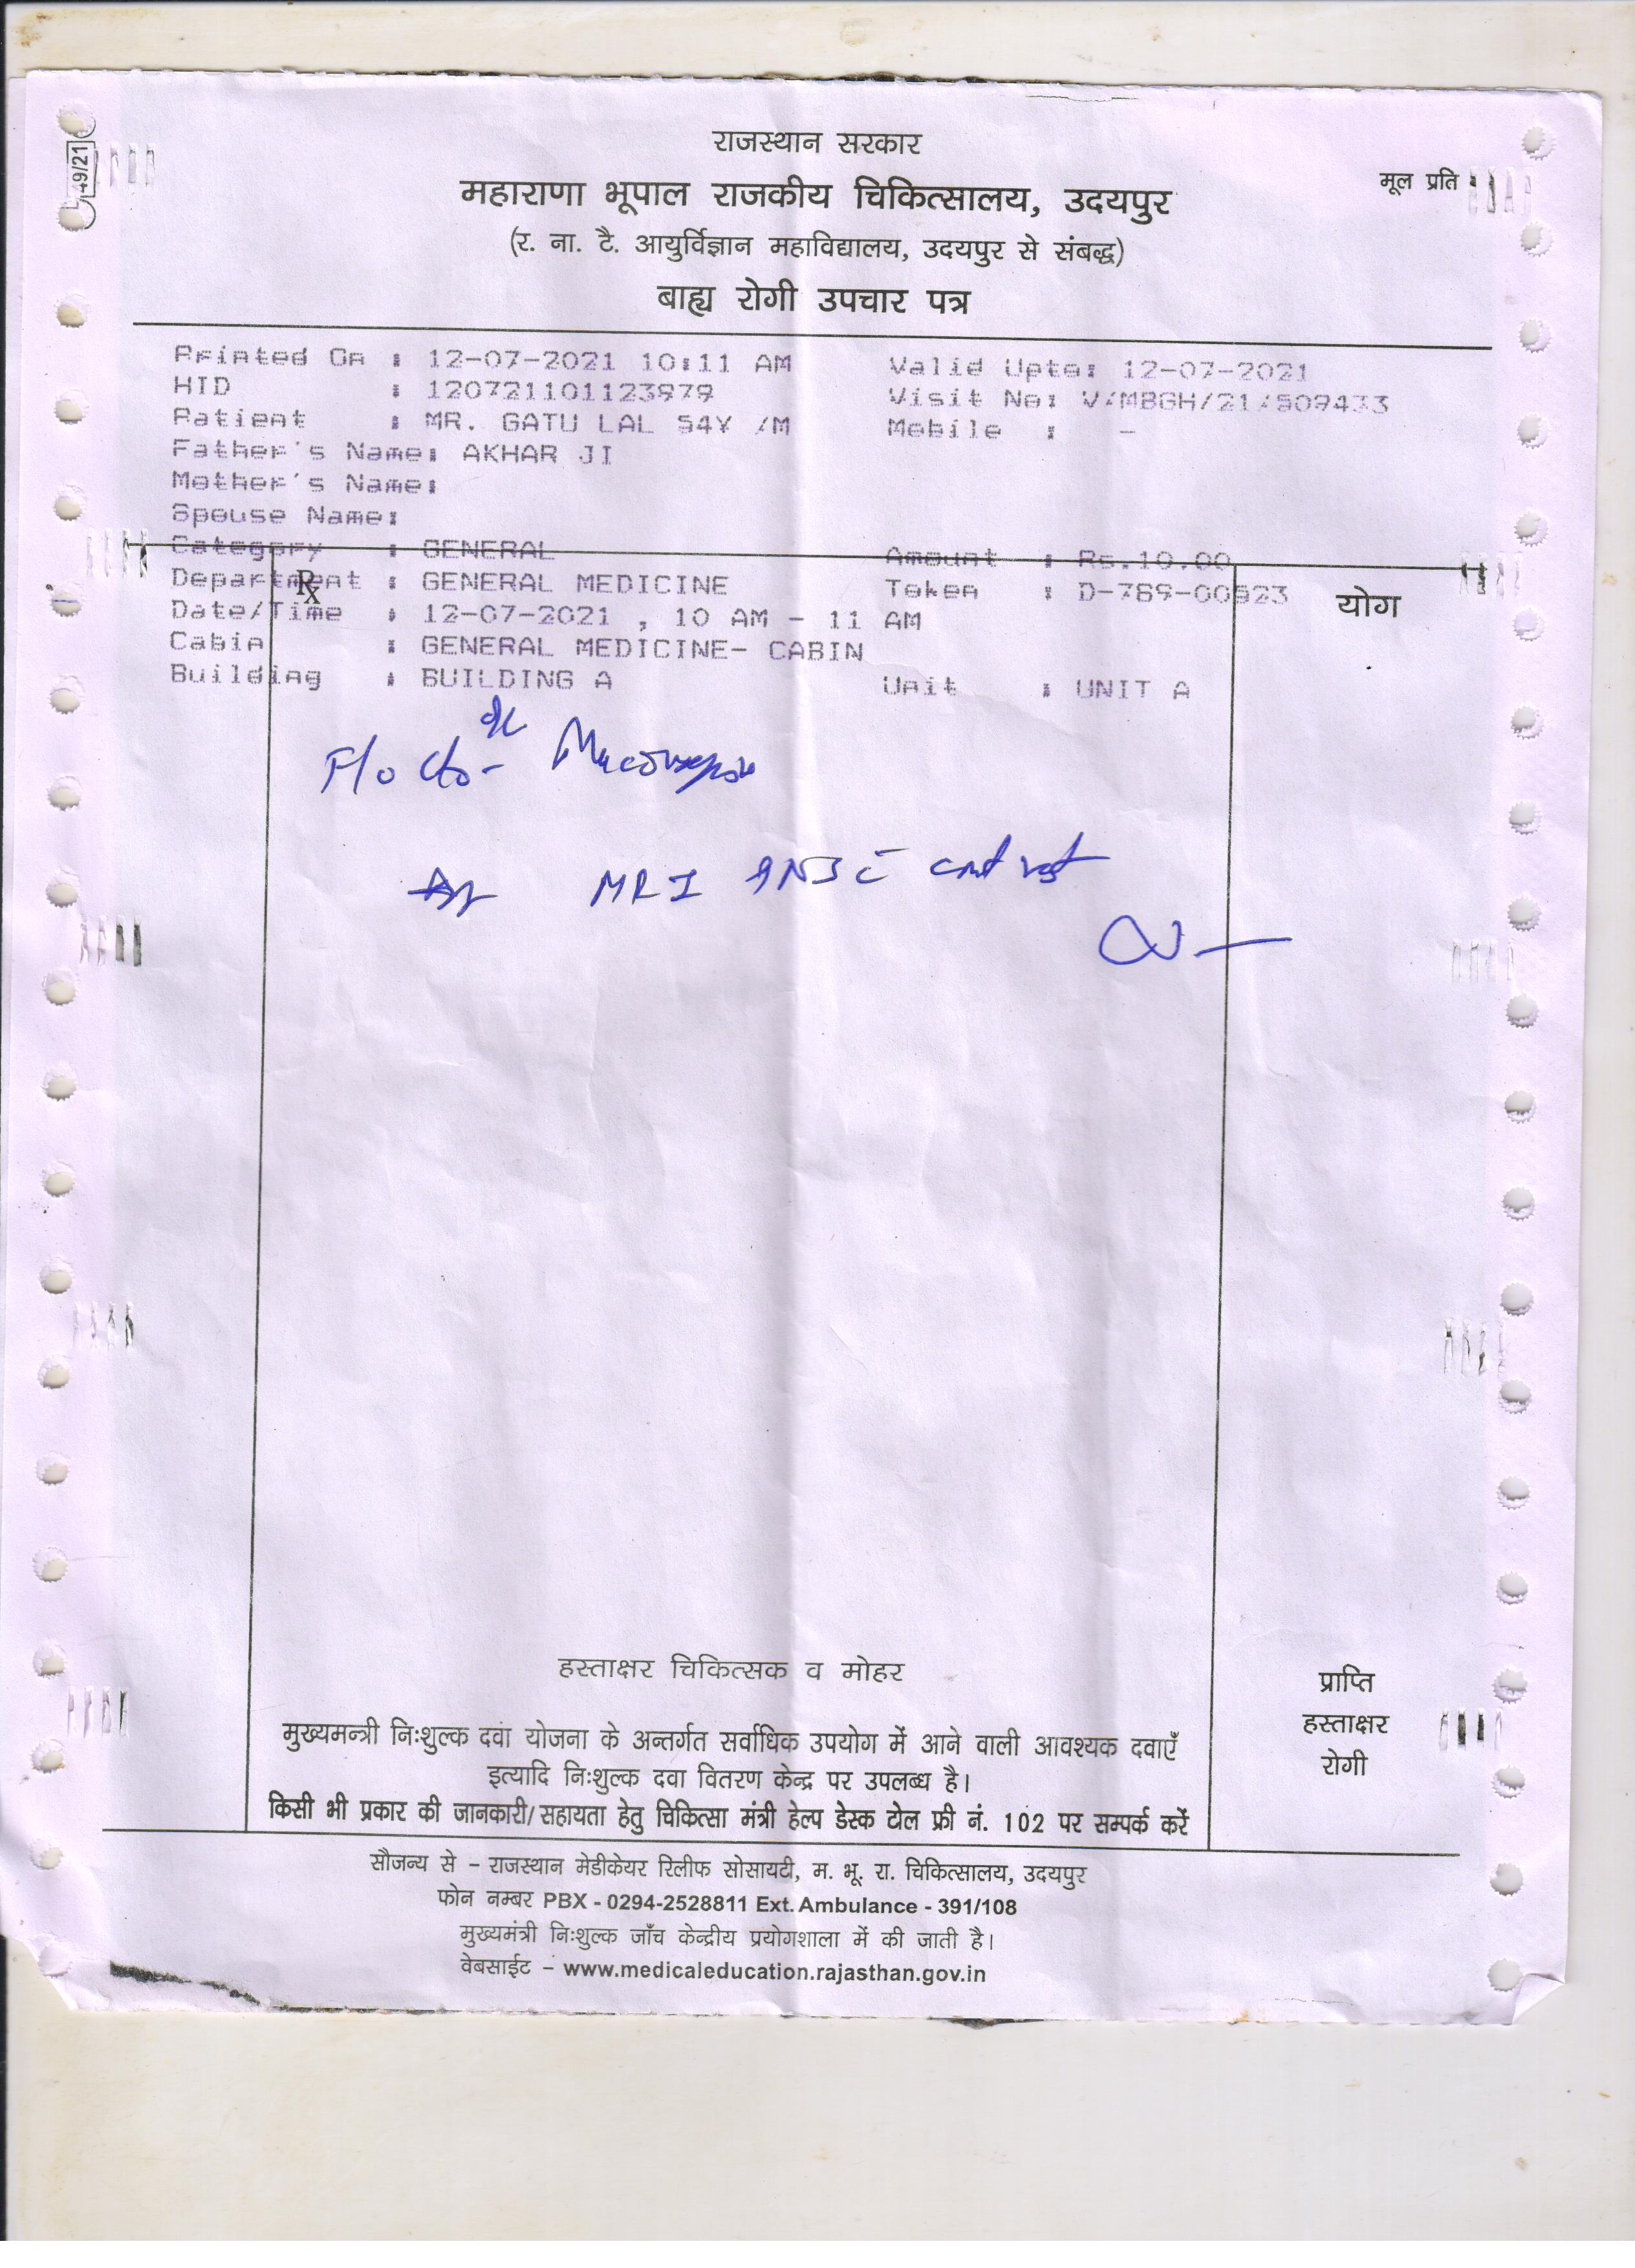 49/21
राजस्थान सरकार
मूल प्रति
महाराणा भूपाल राजकीय चिकित्सालय, उदयपुर
(र. ना. टै. आयुर्विज्ञान महाविद्यालय, उदयपुर से संबद्ध)
बाह्य रोगी उपचार पत्र
Printed On : 12-07-2021 10:11 AM Valid Upto: 12-07-2021
HID : 120721101123979 Visit No: V/MBGH/21/509433
Patient : MR. GATU LAL 54Y /M Mobile : -
Father's Name: AKHAR JI
Mother's Name:
Spouse Name:
Category : GENERAL Amount : Rs.10.00
Department : GENERAL MEDICINE Token : D-789-00523
Rx
योग
Date/Time : 12-07-2021 , 10 AM - 11 AM
Cabin : GENERAL MEDICINE- CABIN
Building : BUILDING A Unit : UNIT A
F/o c/o-
MRI PNS c̄ contrast
हस्ताक्षर चिकित्सक व मोहर
प्राप्ति
हस्ताक्षर
रोगी
मुख्यमन्त्री निःशुल्क दवा योजना के अन्तर्गत सर्वाधिक उपयोग में आने वाली आवश्यक दवाएँ
इत्यादि निःशुल्क दवा वितरण केन्द्र पर उपलब्ध है।
किसी भी प्रकार की जानकारी/सहायता हेतु चिकित्सा मंत्री हेल्प डेस्क टोल फ्री नं. 102 पर सम्पर्क करें
सौजन्य से - राजस्थान मेडीकेयर रिलीफ सोसायटी, म. भू. रा. चिकित्सालय, उदयपुर
फोन नम्बर PBX - 0294-2528811 Ext. Ambulance - 391/108
मुख्यमंत्री निःशुल्क जाँच केन्द्रीय प्रयोगशाला में की जाती है।
वेबसाईट - www.medicaleducation.rajasthan.gov.in